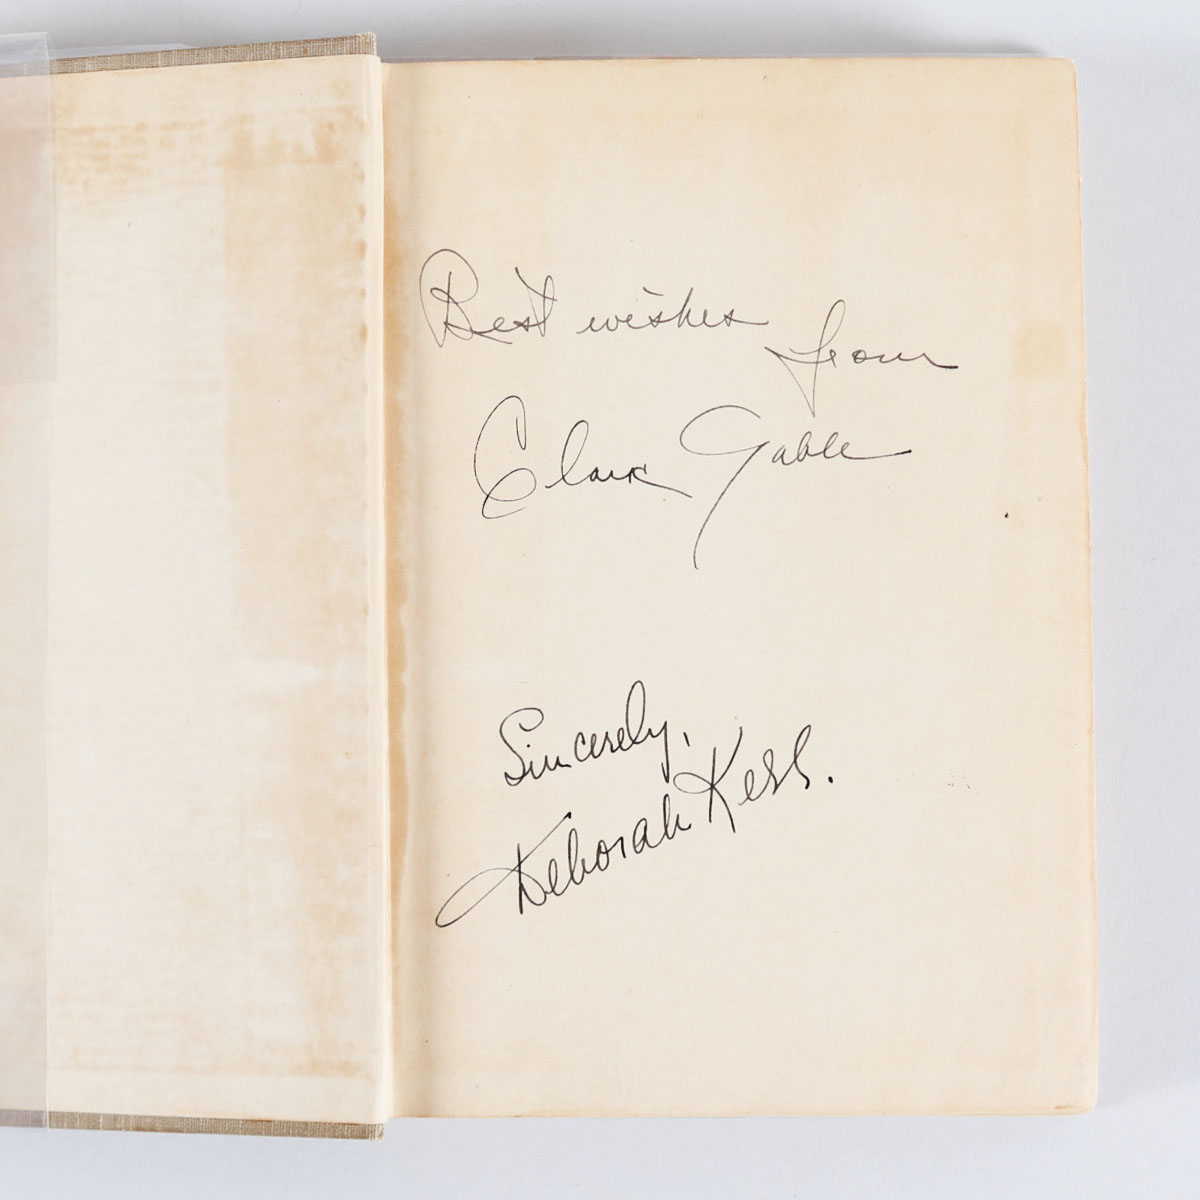 Best wishes from
Clark Gable
Sincerely,
Deborah Kerr.